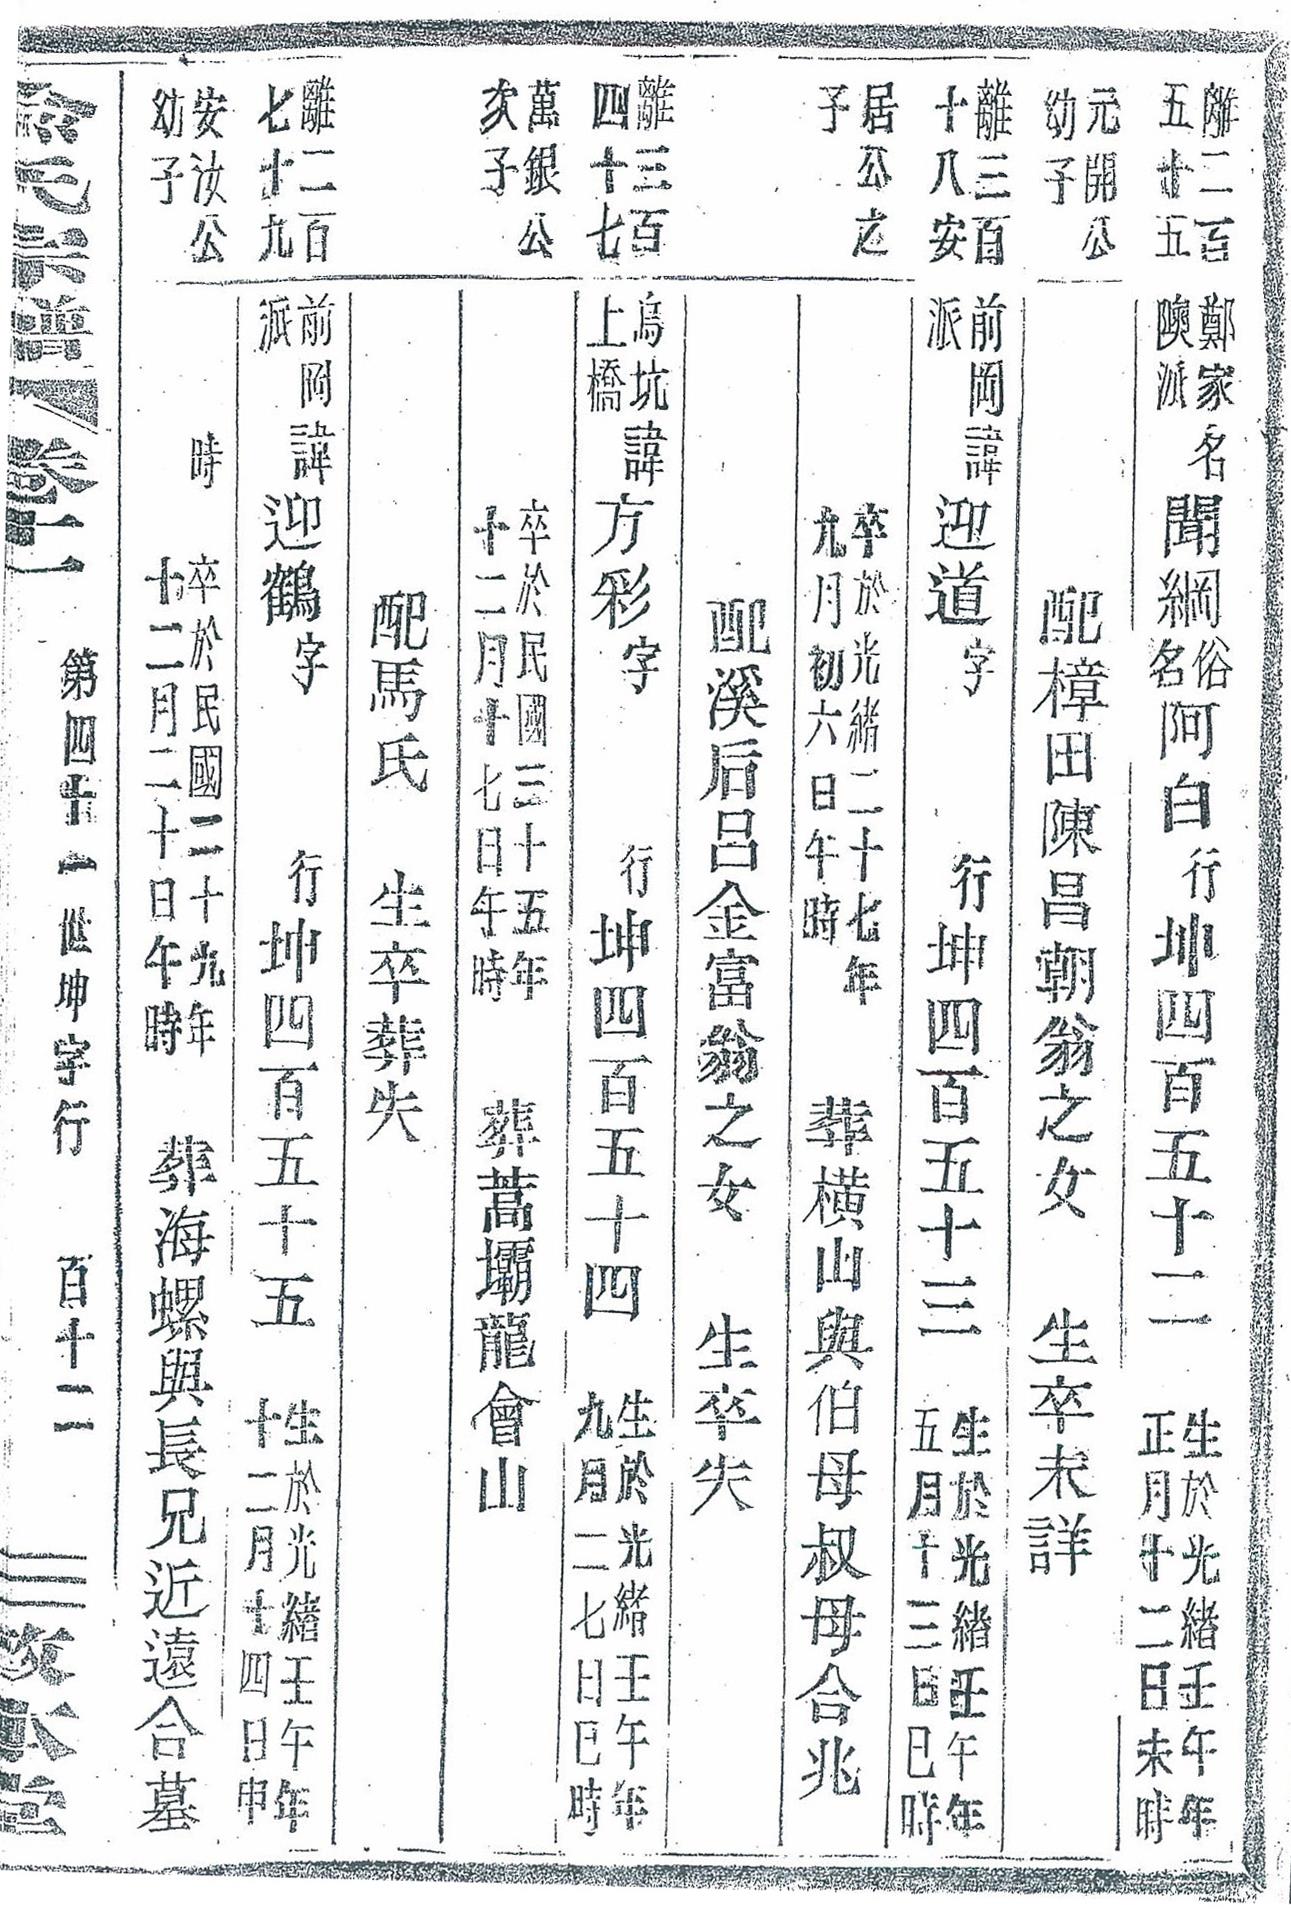 離二百
五十五
鄭家
隩派
名聞綱俗名阿白 行坤四百五十二
生於光緒壬午年
正月十二日未時
元開公
幼子
配樟田陳昌朝翁之女 生卒未詳
離三百
十八安
前岡
派
諱迎道字 行坤四百五十三
生於光緒壬午年
五月十三日巳時
居公之
子
卒於光緒二十七年
九月初六日午時
葬橫山與伯母叔母合兆
配溪后呂金富翁之女 生卒失
離三百
四十七
烏坑
上橋
諱方彩字 行坤四百五十四
生於光緒壬午年
九月二七日巳時
萬銀公
次子
卒於民國三十五年
十二月十七日午時
葬蒿壩龍會山
配馬氏 生卒葬失
離二百
七十九
前岡
派
諱迎鶴字 行坤四百五十五
生於光緒壬午年
十二月十四日申
安汝公
幼子
時
卒於民國二十九年
十二月二十日午時
葬海螺與長兄近遠合墓
氏宗譜 卷 第四十一世坤字行 百十二 本堂